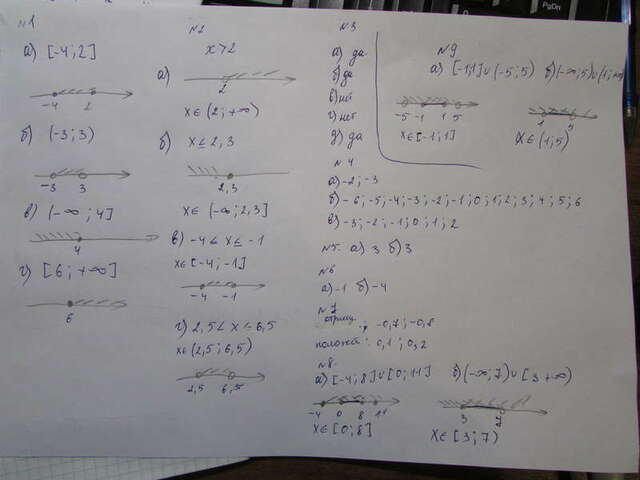 №1
а) [-4; 2]
-4 2
б) (-3; 3)
-3 3
в) (-∞; 4]
4
г) [6; +∞]
6
№2
x>2
а)
2
x∈(2; +∞)
б) x≤2,3
2,3
x∈(-∞; 2,3]
в) -4≤x≤-1
x∈[-4; -1]
-4 -1
г) 2,5<x≤6,5
x∈(2,5; 6,5)
2,5 6,5
№3
а) да
б) да
в) нет
г) нет
д) да
№4
а) -2; -3
б) -6; -5; -4; -3; -2; -1; 0; 1; 2; 3; 4; 5; 6
в) -3; -2; -1; 0; 1; 2
№5. а) 3 б) 3
№6
а) -1 б) -4
№7
отриц.: -0,7; -0,8
полож: 0,1; 0,2
№8.
а) [-4; 8]∪[0; 11] б) (-∞; 7)∪[3 +∞)
-4 0 8 11
x∈[0; 8]
3
x∈[3; 7)
№9
а) [-1;1]∪(-5; 5) б) (-∞; 5)∪(1; +∞)
-5 -1 1 5
x∈[-1; 1]
1 5
x∈(1; 5)